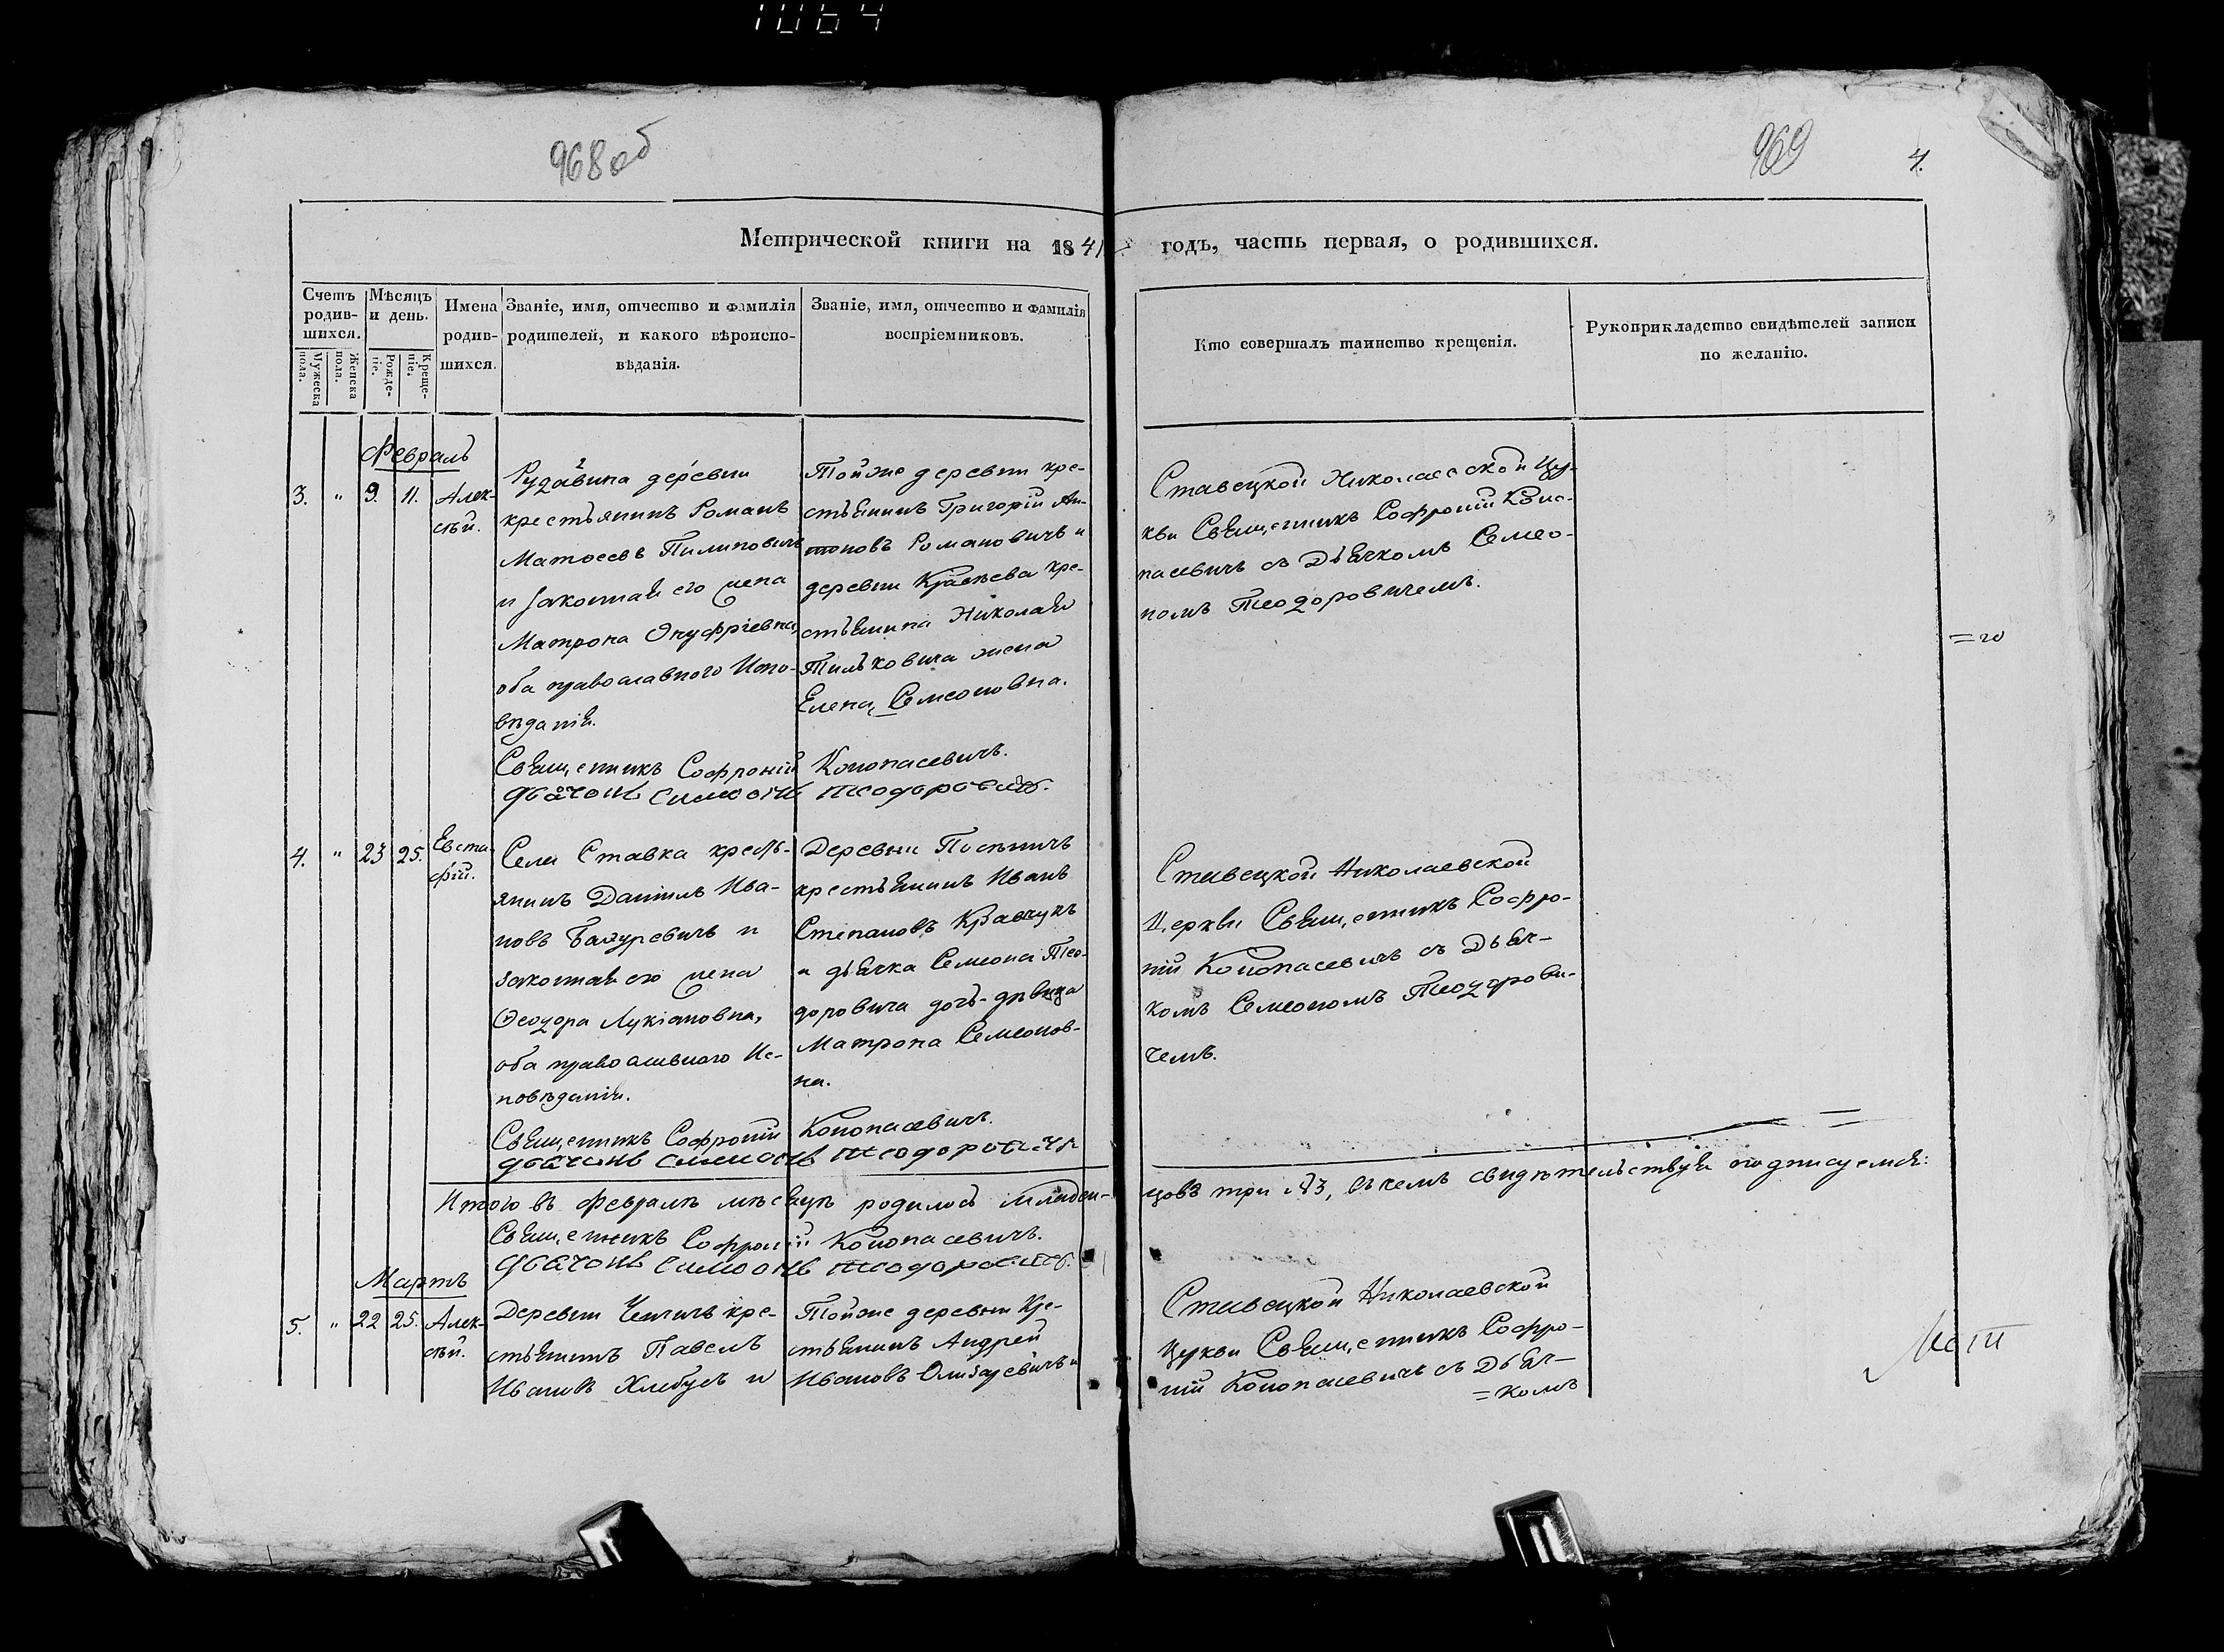 1064
968 об
969
4.
Метрической книги на 1841 годъ, часть первая, о родившихся.
Счетъ родив-шихся.
Мужеска пола.
Женска пола.
Мѣсяцъ и день.
Рожде-ніе.
Креще-ніе.
Имена родив-шихся.
Званіе, имя, отчество и фамилія
родителей, и какого вѣроиспо-
вѣданія.
Званіе, имя, отчество и фамилія
воспріемниковъ.
Кто совершалъ таинство крещенія.
Рукоприкладство свидѣтелей записи
по желанію.
Февраль
3. " 9. 11. Алек-
сѣй.
Рудавина деревни
крестьянинъ Романъ
Матѳеевъ Пилиповичъ
и законная его жена
Матрона Онуфріевна,
оба православного Испо-
вѣданія.
Тойже деревни кре-
стьянинъ Григорій Ан-
тоновъ Романовичъ и
деревни кре-
стьянина Николая
Тильковича жена
Елена Семеоновна.
Ставецкой Николаевской Цер-
кви Священникъ Софроній Коно-
пасевичъ съ Дьячкомъ Семео-
номъ Теодоровичемъ.
=го
Священникъ Софроній Конопасевичъ.
Дьячокъ Симеонъ Теодоровичъ.
4. " 23 25. Евста-
фій.
Села Ставка кресть-
янинъ Даніилъ Ива-
новъ и
законная его жена
Ѳеодора Лукіановна,
оба православного Ис-
повѣданія.
Деревни
крестьянинъ Иванъ
Степановъ Кравчукъ
и дьячка Семеона Тео-
доровича дочь-дѣвица
Матрона Семеонов-
на.
Ставецкой Николаевской
Церкви Священникъ Софро-
ній Конопасевичъ съ Дьяч-
комъ Семеономъ Теодорови-
чемъ.
Священникъ Софроній Конопасевичъ.
Дьячокъ Симеонъ Теодоровичъ
Итого въ февралѣ мѣсяцѣ родилось младен-цовъ три №3, въ чемъ свидѣтельствуя подписуемся:
Священникъ Софроній Конопасевичъ.
Дьячокъ Симеонъ Теодоровичъ.
Мартъ
5. " 22 25. Алек-
сѣй.
Деревни кре-
стьянинъ Павелъ
Ивановъ Хлебусъ и
Тойже деревни Кре-
стьянинъ Андрей
Ивановъ Олизаревичъ и
Ставецкой Николаевской
Церкви Священникъ Софро-
ній Конопасевичъ съ Дьяч-
=комъ